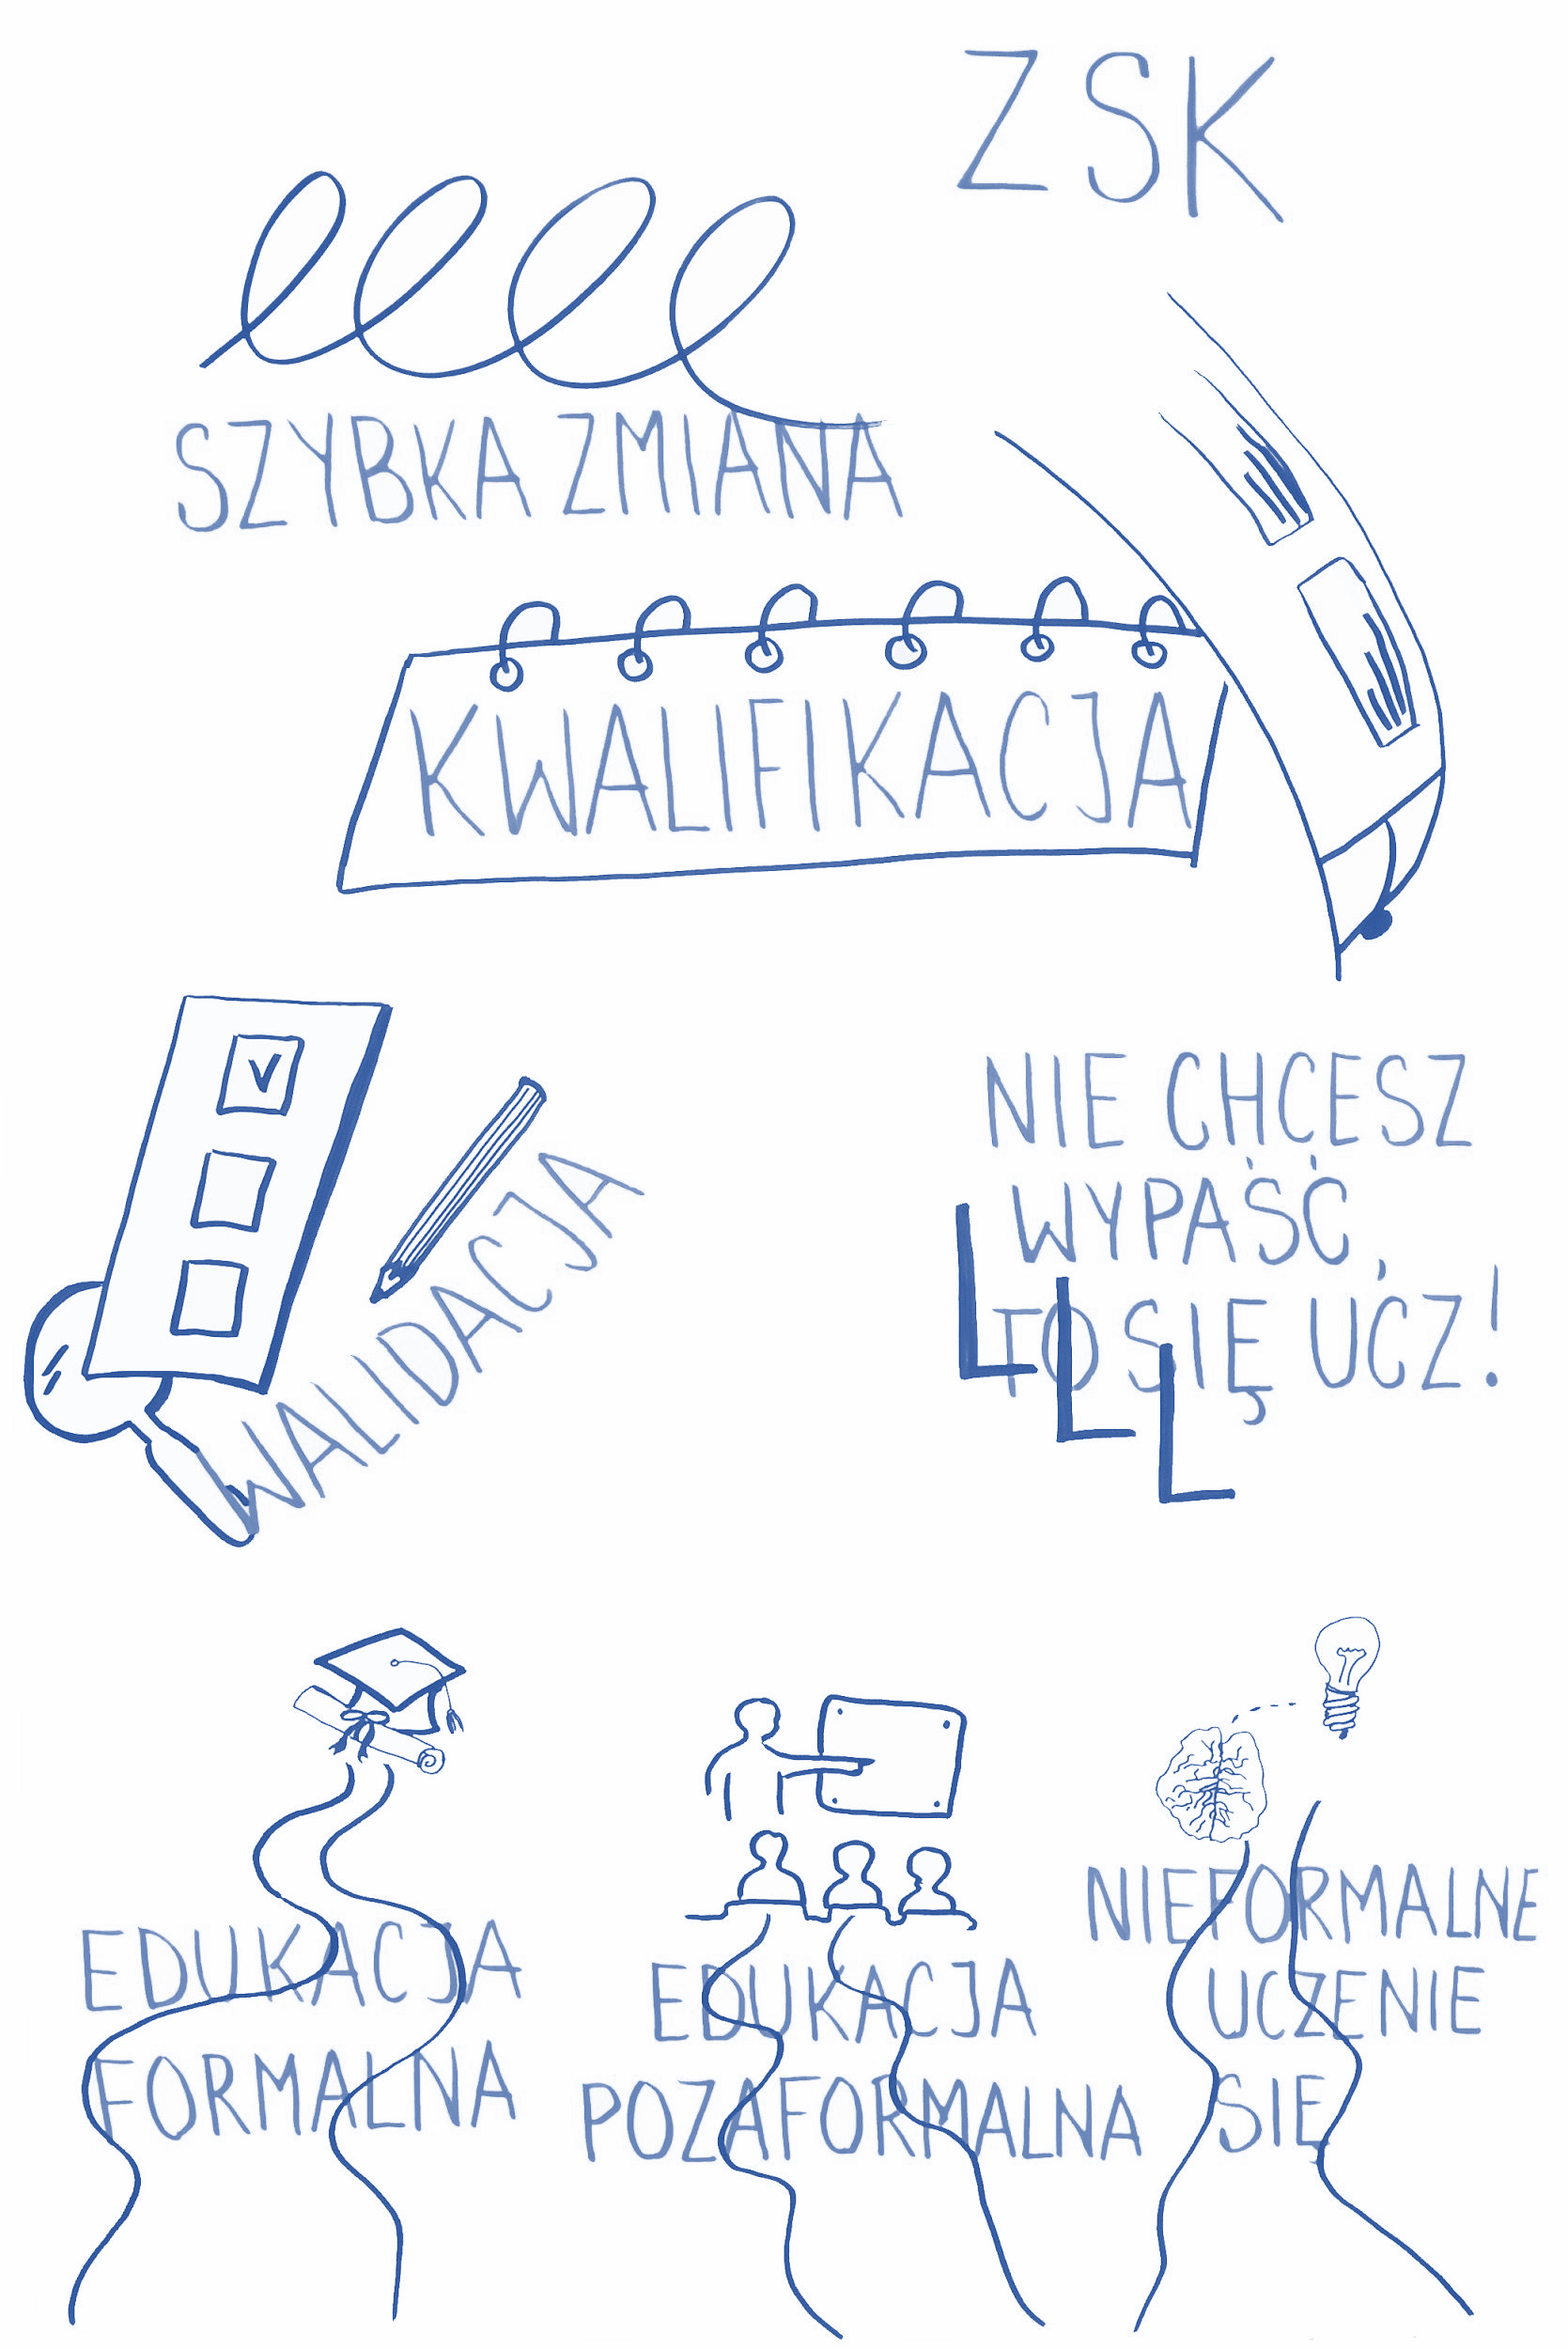 ZSK
SZYBKA ZMIANA
KWALIFIKACJA
WALIDACJA
NIE CHCESZ
WYPAŚĆ,
TO SIĘ UCZ!
L
L
L
EDUKACJA
FORMALNA
EDUKACJA
POZAFORMALNA
NIEFORMALNE
UCZENIE
SIĘ